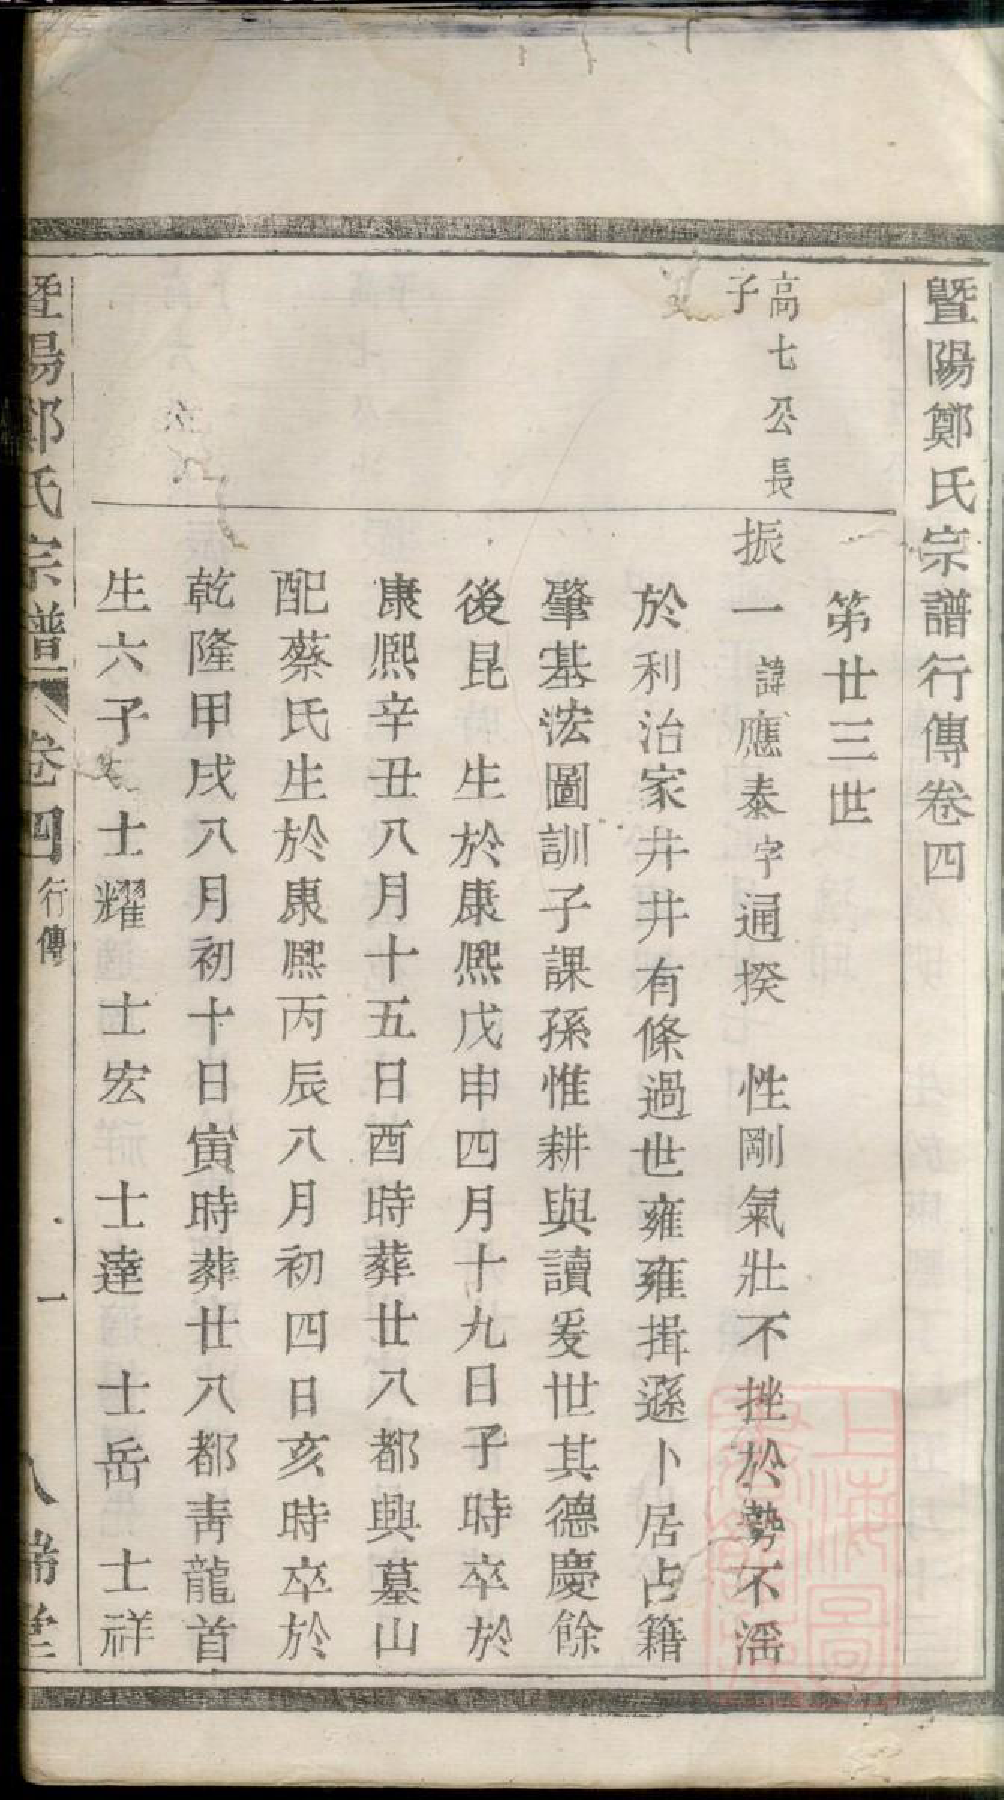 暨陽鄭氏宗譜行傳卷四
第廿三世
高七公長
子
振一諱應泰字通揆　性剛氣壯不挫於勢不滛
於利治家井井有條過世雍雍揖遜卜居占籍
肇基浤圖訓子課孫惟耕與讀爰世其德慶餘
後昆　生於康熙戊申四月十九日子時卒於
康熙辛丑八月十五日酉時葬廿八都興墓山
配蔡氏生於康熙丙辰八月初四日亥時卒於
乾隆甲戌八月初十日寅時葬廿八都靑龍首
生六子　士耀　士宏　士達　士岳　士祥
暨陽鄭氏宗譜　卷四　行傳　一
上海圖